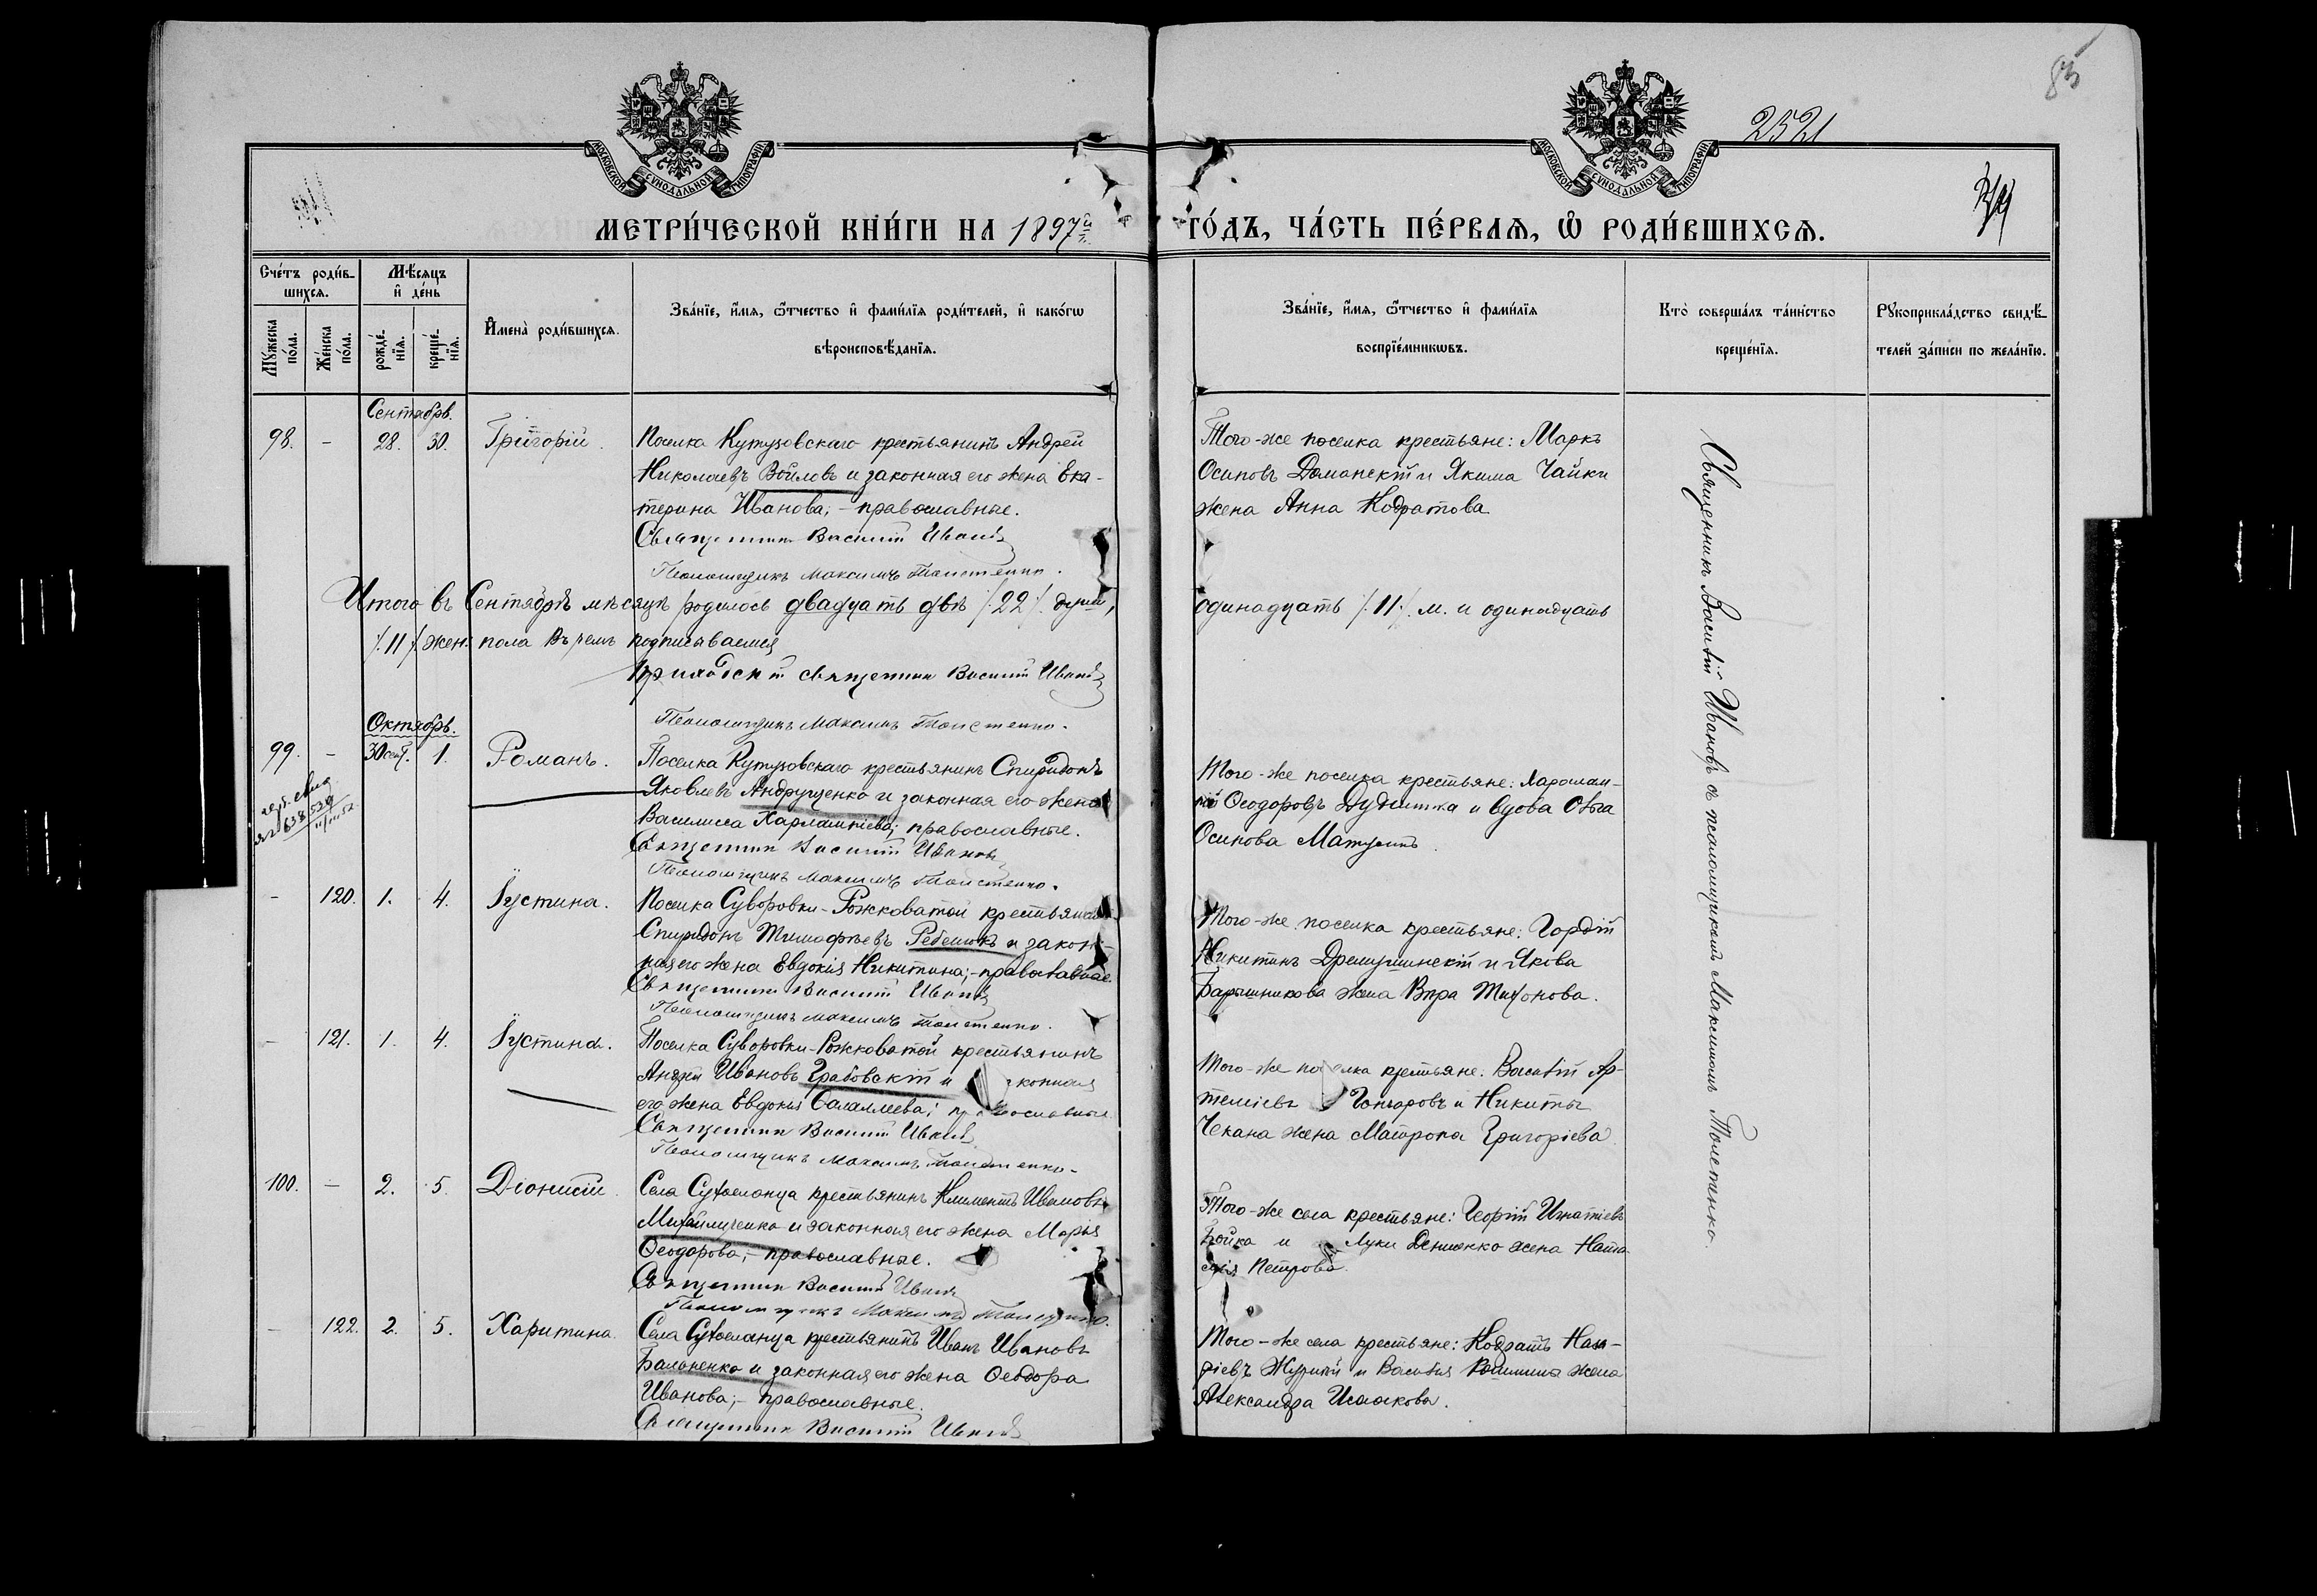 83
2521
МОСКОВСКОЙ СУНОДАЛЬНОЙ ТИПОГРАФІИ
МОСКОВСКОЙ СУНОДАЛЬНОЙ ТИПОГРАФІИ
МЕТРИ́ЧЕСКОЙ КНИ́ГИ НА 1897й
ГО́ДЪ, ЧА́СТЬ ПЕ́РВАѦ, Ѡ҆ РОДИ́ВШИХСѦ.
Сче́тъ роди́в-
шихсѧ.
Мꙋ́жеска по́ла.
Же́нска по́ла.
Мѣ́сѧцъ
и҆ де́нь
рожде́-
нїѧ.
креще́-
нїѧ.
И҆мена̀ роди́вшихсѧ.
Зва́нїе, и҆́мѧ, ѻ҆́тчество и҆ фами́лїѧ роди́телей, и҆ како́гѡ
вѣроисповѣ́данїѧ.
Зва́нїе, и҆́мѧ, ѻ҆́тчество и҆ фами́лїѧ
воспрїе́мникѡвъ.
Кто̀ соверша́лъ та́инство
креще́нїѧ.
Рꙋкоприкла́дство свидѣ́-
телей за́писи по жела́нїю.
Сентябрь.
98. - 28. 30. Григорій.
Поселка Кутузовскаго крестьянинъ Андрей
Николаевъ Войловъ и законная его жена Ека-
терина Иванова; - православные.
Священник Василій Иванов
Псаломщикъ Максимъ Толстенко.
Того-же поселка крестьяне: Маркъ
Осиповъ Доманскій и Якима Чайки
жена Анна Кодратова
Итого въ Сентябрѣ мѣсяцѣ родилось двадцать двѣ /:22:/ души,
одинадцать /:11:/ м. и одинадцать
/:11:/ жен: пола Въ чемъ подписываемся
Приходскій священник Василій Иванов
Псаломщикъ Максимъ Толстенко.
Октябрь.
99. - 30 сент. 1. Романъ.
Поселка Кутузовскаго крестьянинъ Спиридонъ
Яковлевъ Андрущенко и законная его жена
Василиса Харлампіева; православные.
Священник Василій Иванов
Псаломщикъ Максимъ Толстенко.
Того-же поселка крестьяне: Харолам-
пій Ѳеодоровъ и вдова Ольга
Осипова
- 120. 1. 4. Іустина.
Поселка Суворовки-Рожковатой крестьянинъ
Спиридонъ Тимофѣевъ Ребешкъ и закон-
ная его жена Евдокія Никитина; - православные.
Священник Василій Иванов
Псаломщикъ Максимъ Толстенко.
Того-же поселка крестьяне: Гордій
Никитинъ и Якова
Барышникова жена Вѣра Тихонова.
- 121. 1. 4. Іустина.
Поселка Суворовки-Рожковатой крестьянинъ
Андрей Ивановъ Грабовскій и законная
его жена Евдокія православные
Священник Василій Иванов
Псаломщикъ Максимъ Толстенко.
Того-же поселка крестьяне: Василій Ар-
теміевъ Гончаровъ и Никиты
Чекана жена Матрона Григоріева
100. - 2. 5. Діонисій.
Села Сухоеланца крестьянинъ Климентъ Ивановъ
Михайлученко и законная его жена Марія
Ѳеодорова; - православные.
Священник Василій Иванов
Псаломщикъ Максимъ Толстенко.
Того-же села крестьяне: Георгій Игнатіевъ
Бойка и Луки Денисенко жена Ната-
лія Петрова.
- 122. 2. 5. Харитина.
Села Сухоеланца крестьянинъ Иванъ Ивановъ
Балоненко и законная его жена Ѳеодора
Иванова; - православные.
Священник Василій Иванов
Того-же села крестьяне: Кодратъ
и Василія жена
Александра Исаакова.
Священникъ Василій Ивановъ съ псаломщикомъ Максимомъ Толстенко.